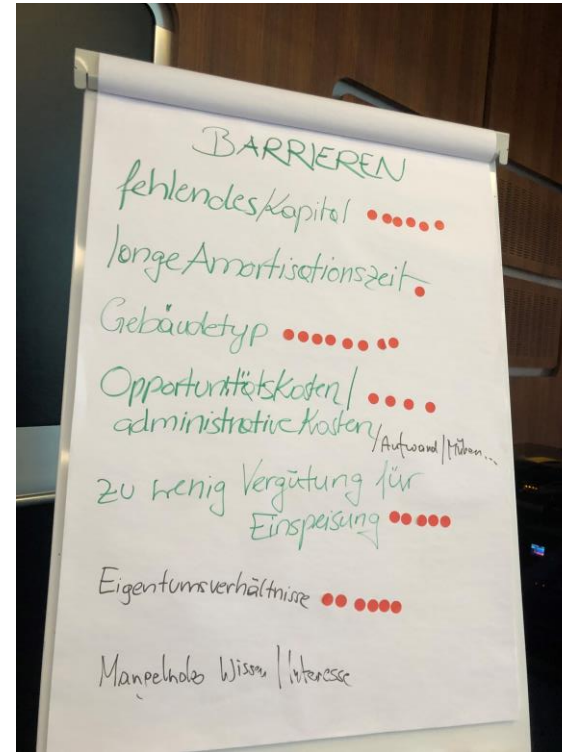 BARRIEREN
fehlendes Kapital
lange Amortisationszeit
Gebäudetyp
Opportunitätskosten/
administrative Kosten/Aufwand/Mühen...
zu wenig Vergütung für
Einspeisung
Eigentumsverhältnisse
Mangelndes Wissen/Interesse